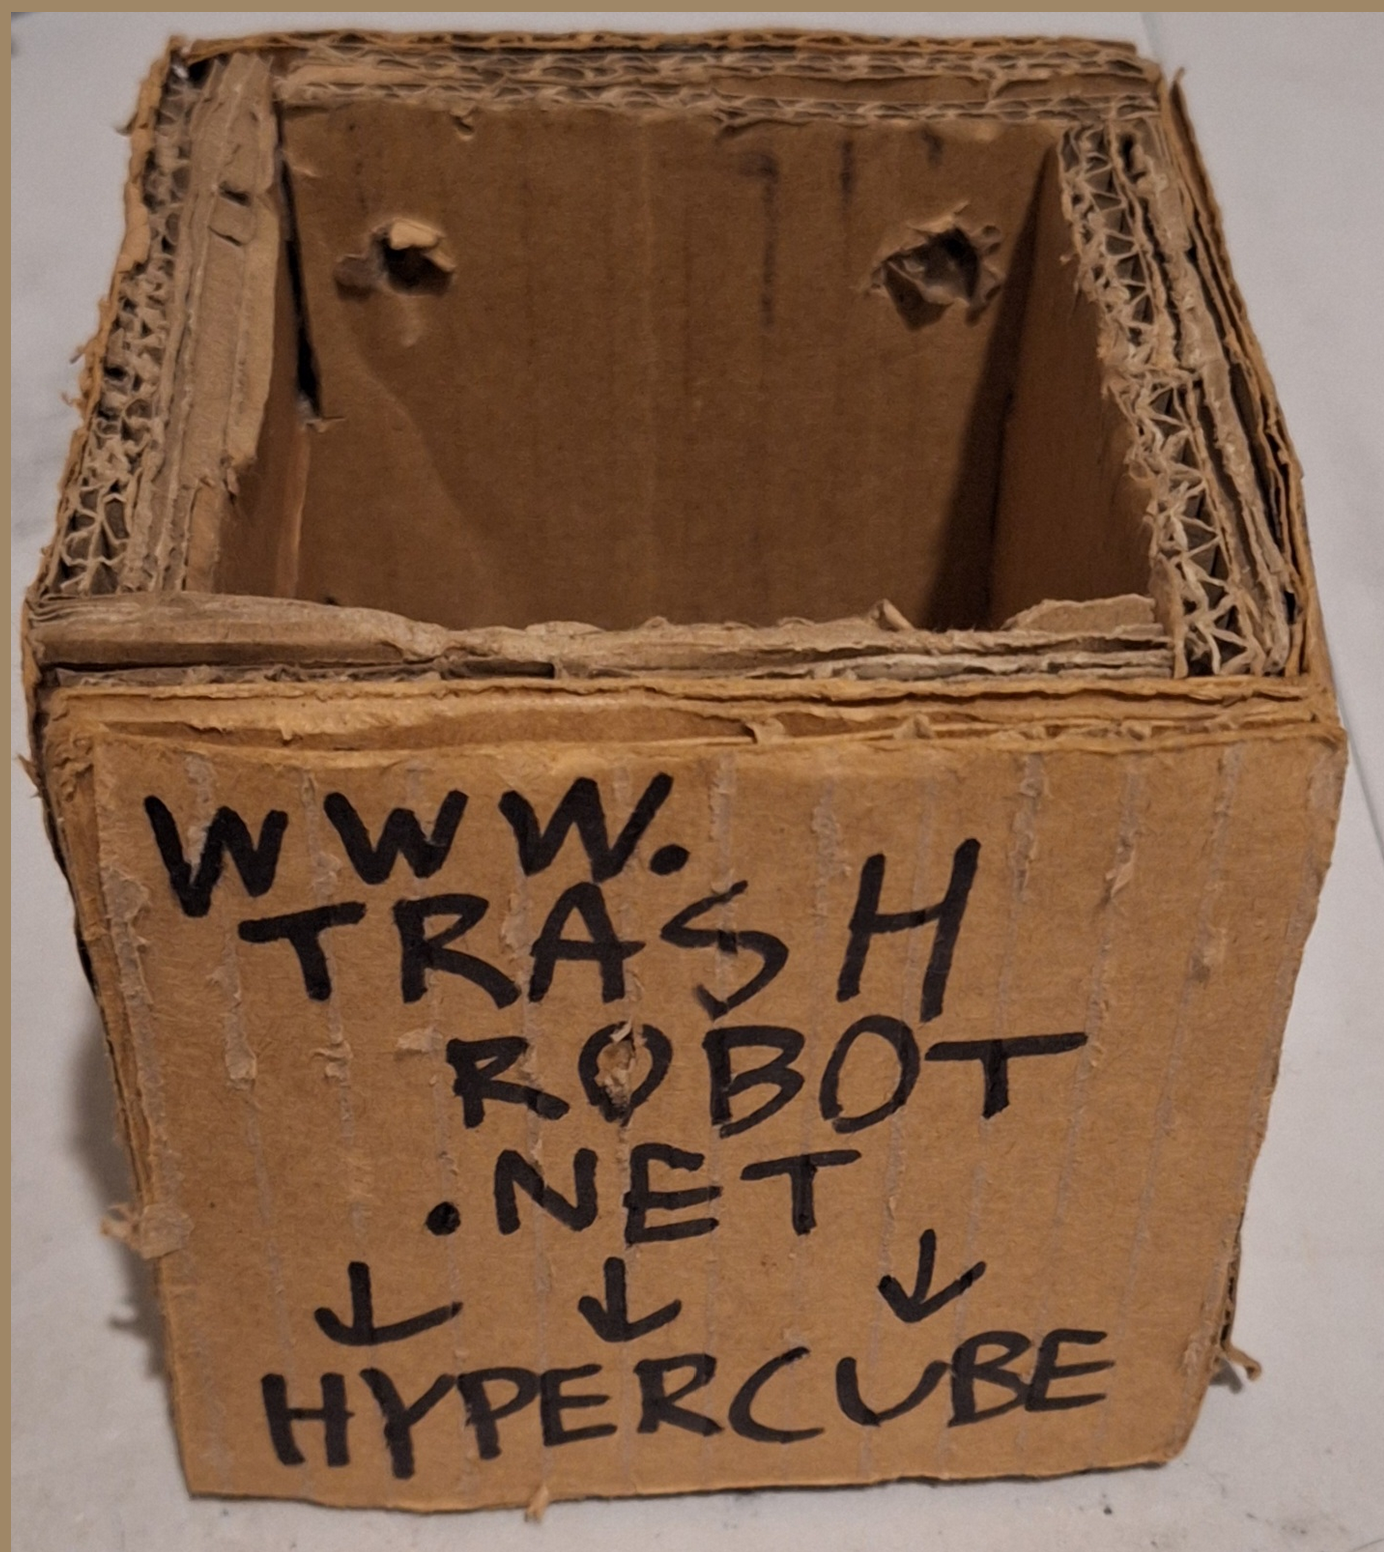 WWW.
TRASH
ROBOT
.NET
↓ ↓ ↓
HYPERCUBE